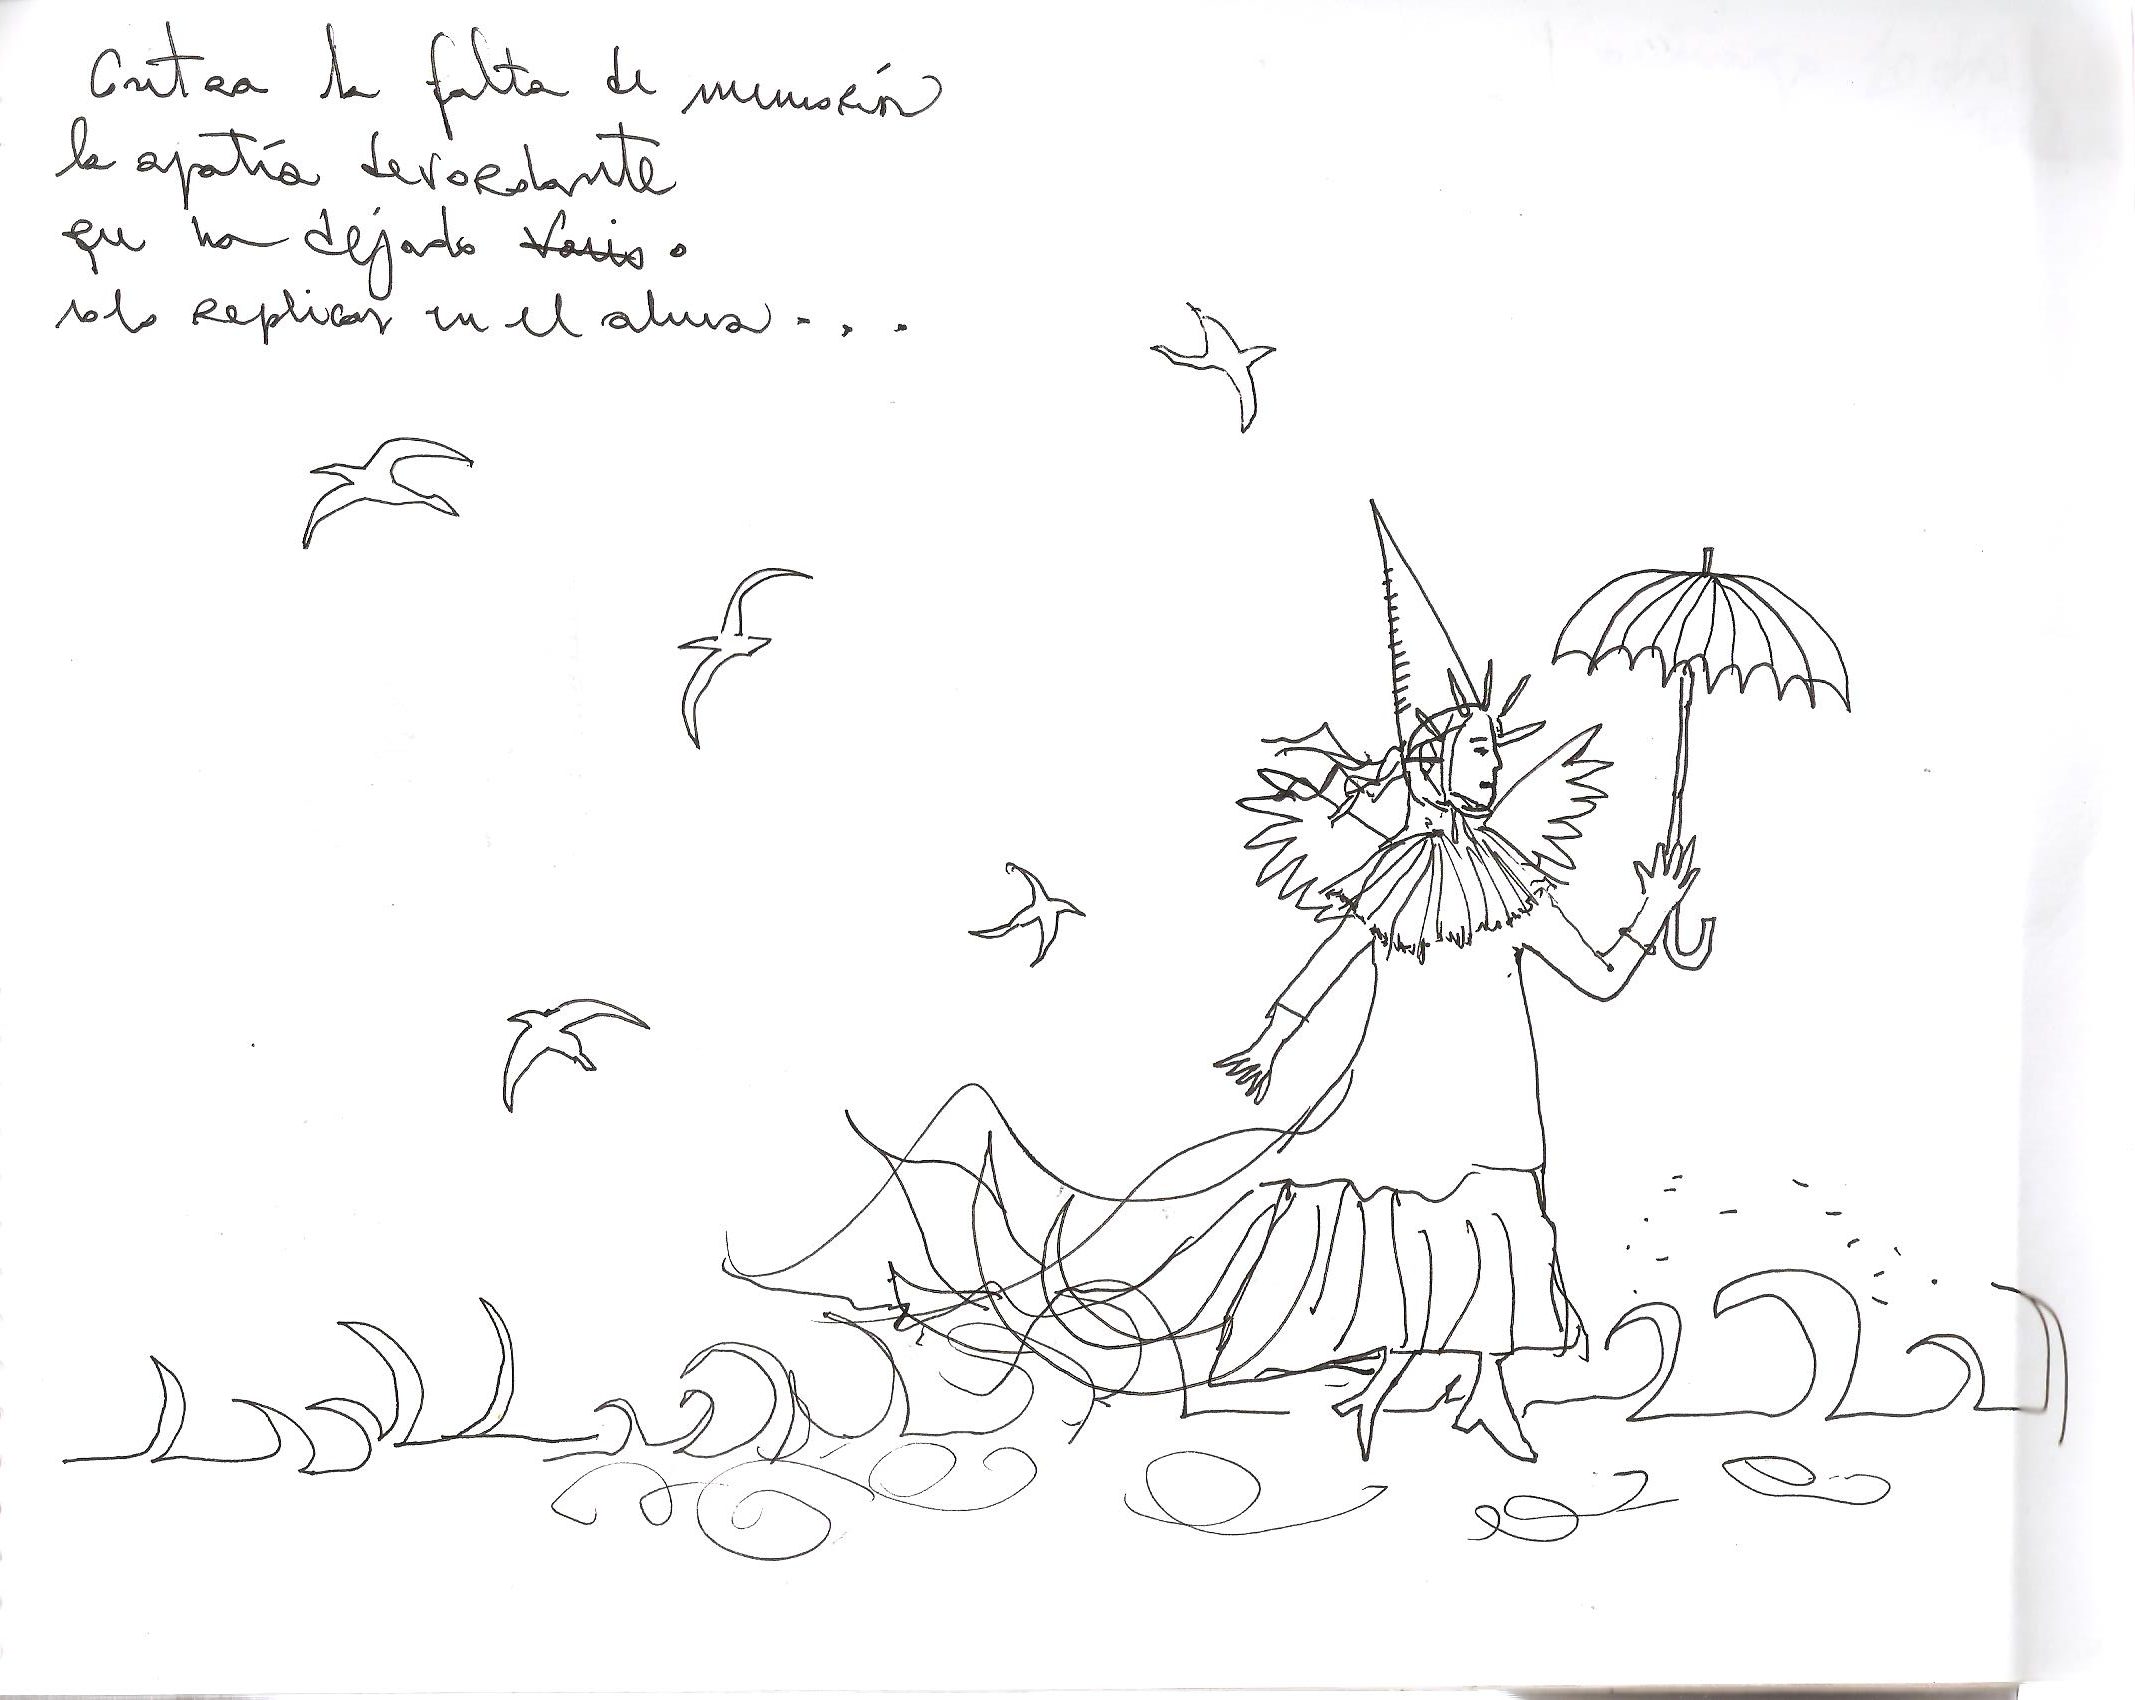 Contra la falta de memoria
la apatía devordante
que ha dejado
solo replicas en el alma...